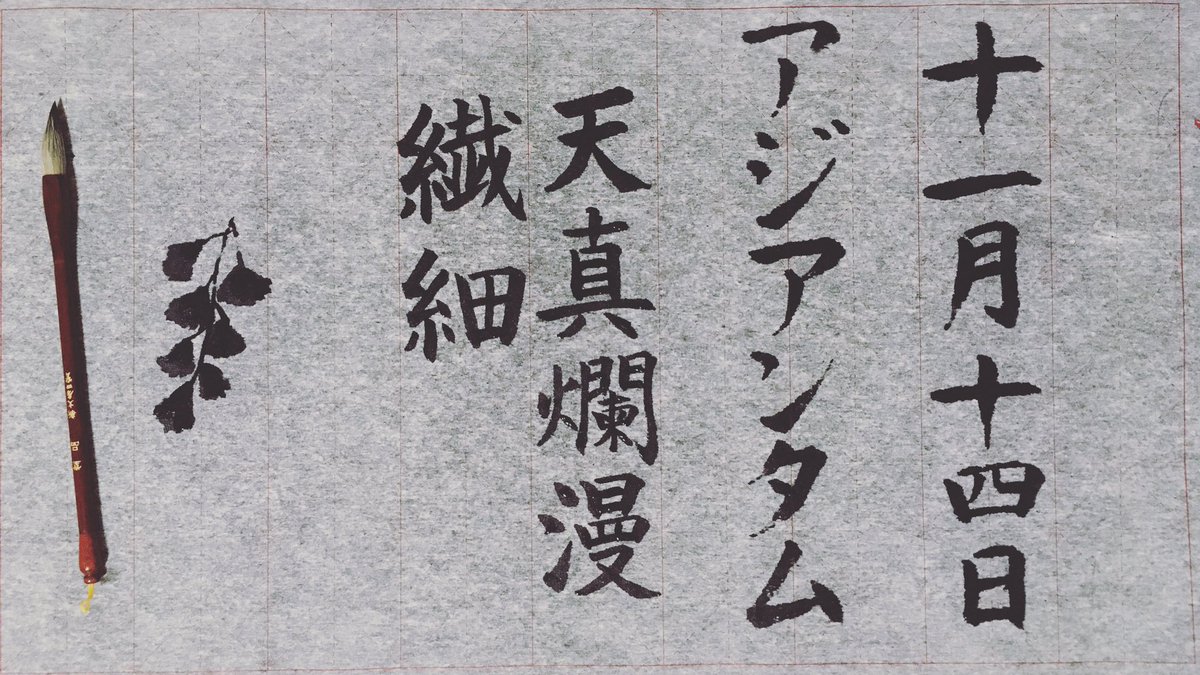 十一月十四日
アジアンタム
天真爛漫
繊細